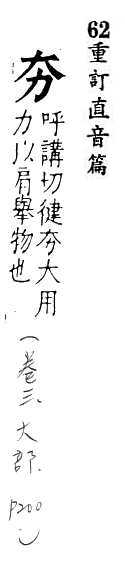 62重訂直音篇
夯
呼講切徤夯大用
力以肩舉物也
(卷三.大部. P200)